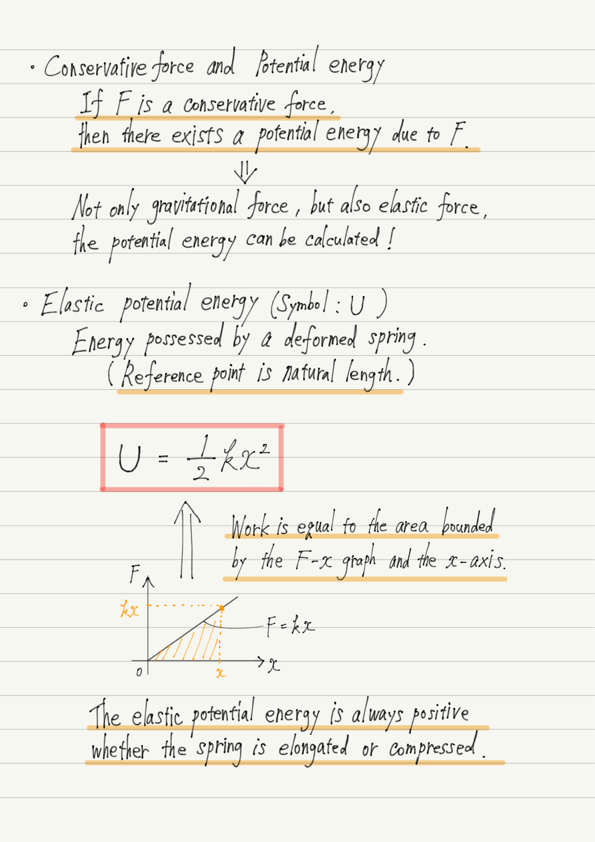 ・Conservative force and Potential energy
If F is a conservative force,
then there exists a potential energy due to F.
⇓
Not only gravitational force, but also elastic force,
the potential energy can be calculated!
・Elastic potential energy (Symbol : U )
Energy possessed by a deformed spring.
(Reference point is natural length.)
U = 1/2 kx²
Work is equal to the area bounded
by the F-x graph and the x-axis.
F
kx
F = kx
0
x
x
The elastic potential energy is always positive
whether the spring is elongated or compressed.